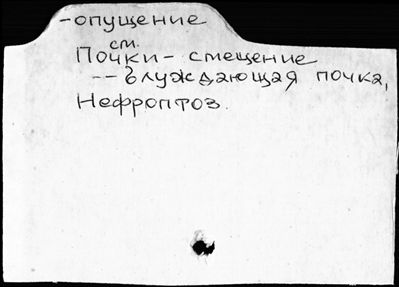 -опущение
см.
Почки - смещение
-- блуждающая почка,
Нефроптоз.